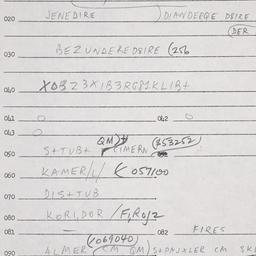 020 JENEDIRE ) DIANDEEQE DSIRE
(DER
030 BEZUNDEREDSIRE (256
040 XDBZ3XIB3RG81KLIB+
041 0 042 0
043 0
050 S+TUB+ QM)+ CIMERN (453252)
060 KAMER/L/ ( 057100
070 DIS+TUB
080 KORIDOR /FIRoJ2
081 082 FIRES
(1069040)
090 ALMER (CM QM) S+PAJXLER CM SKL